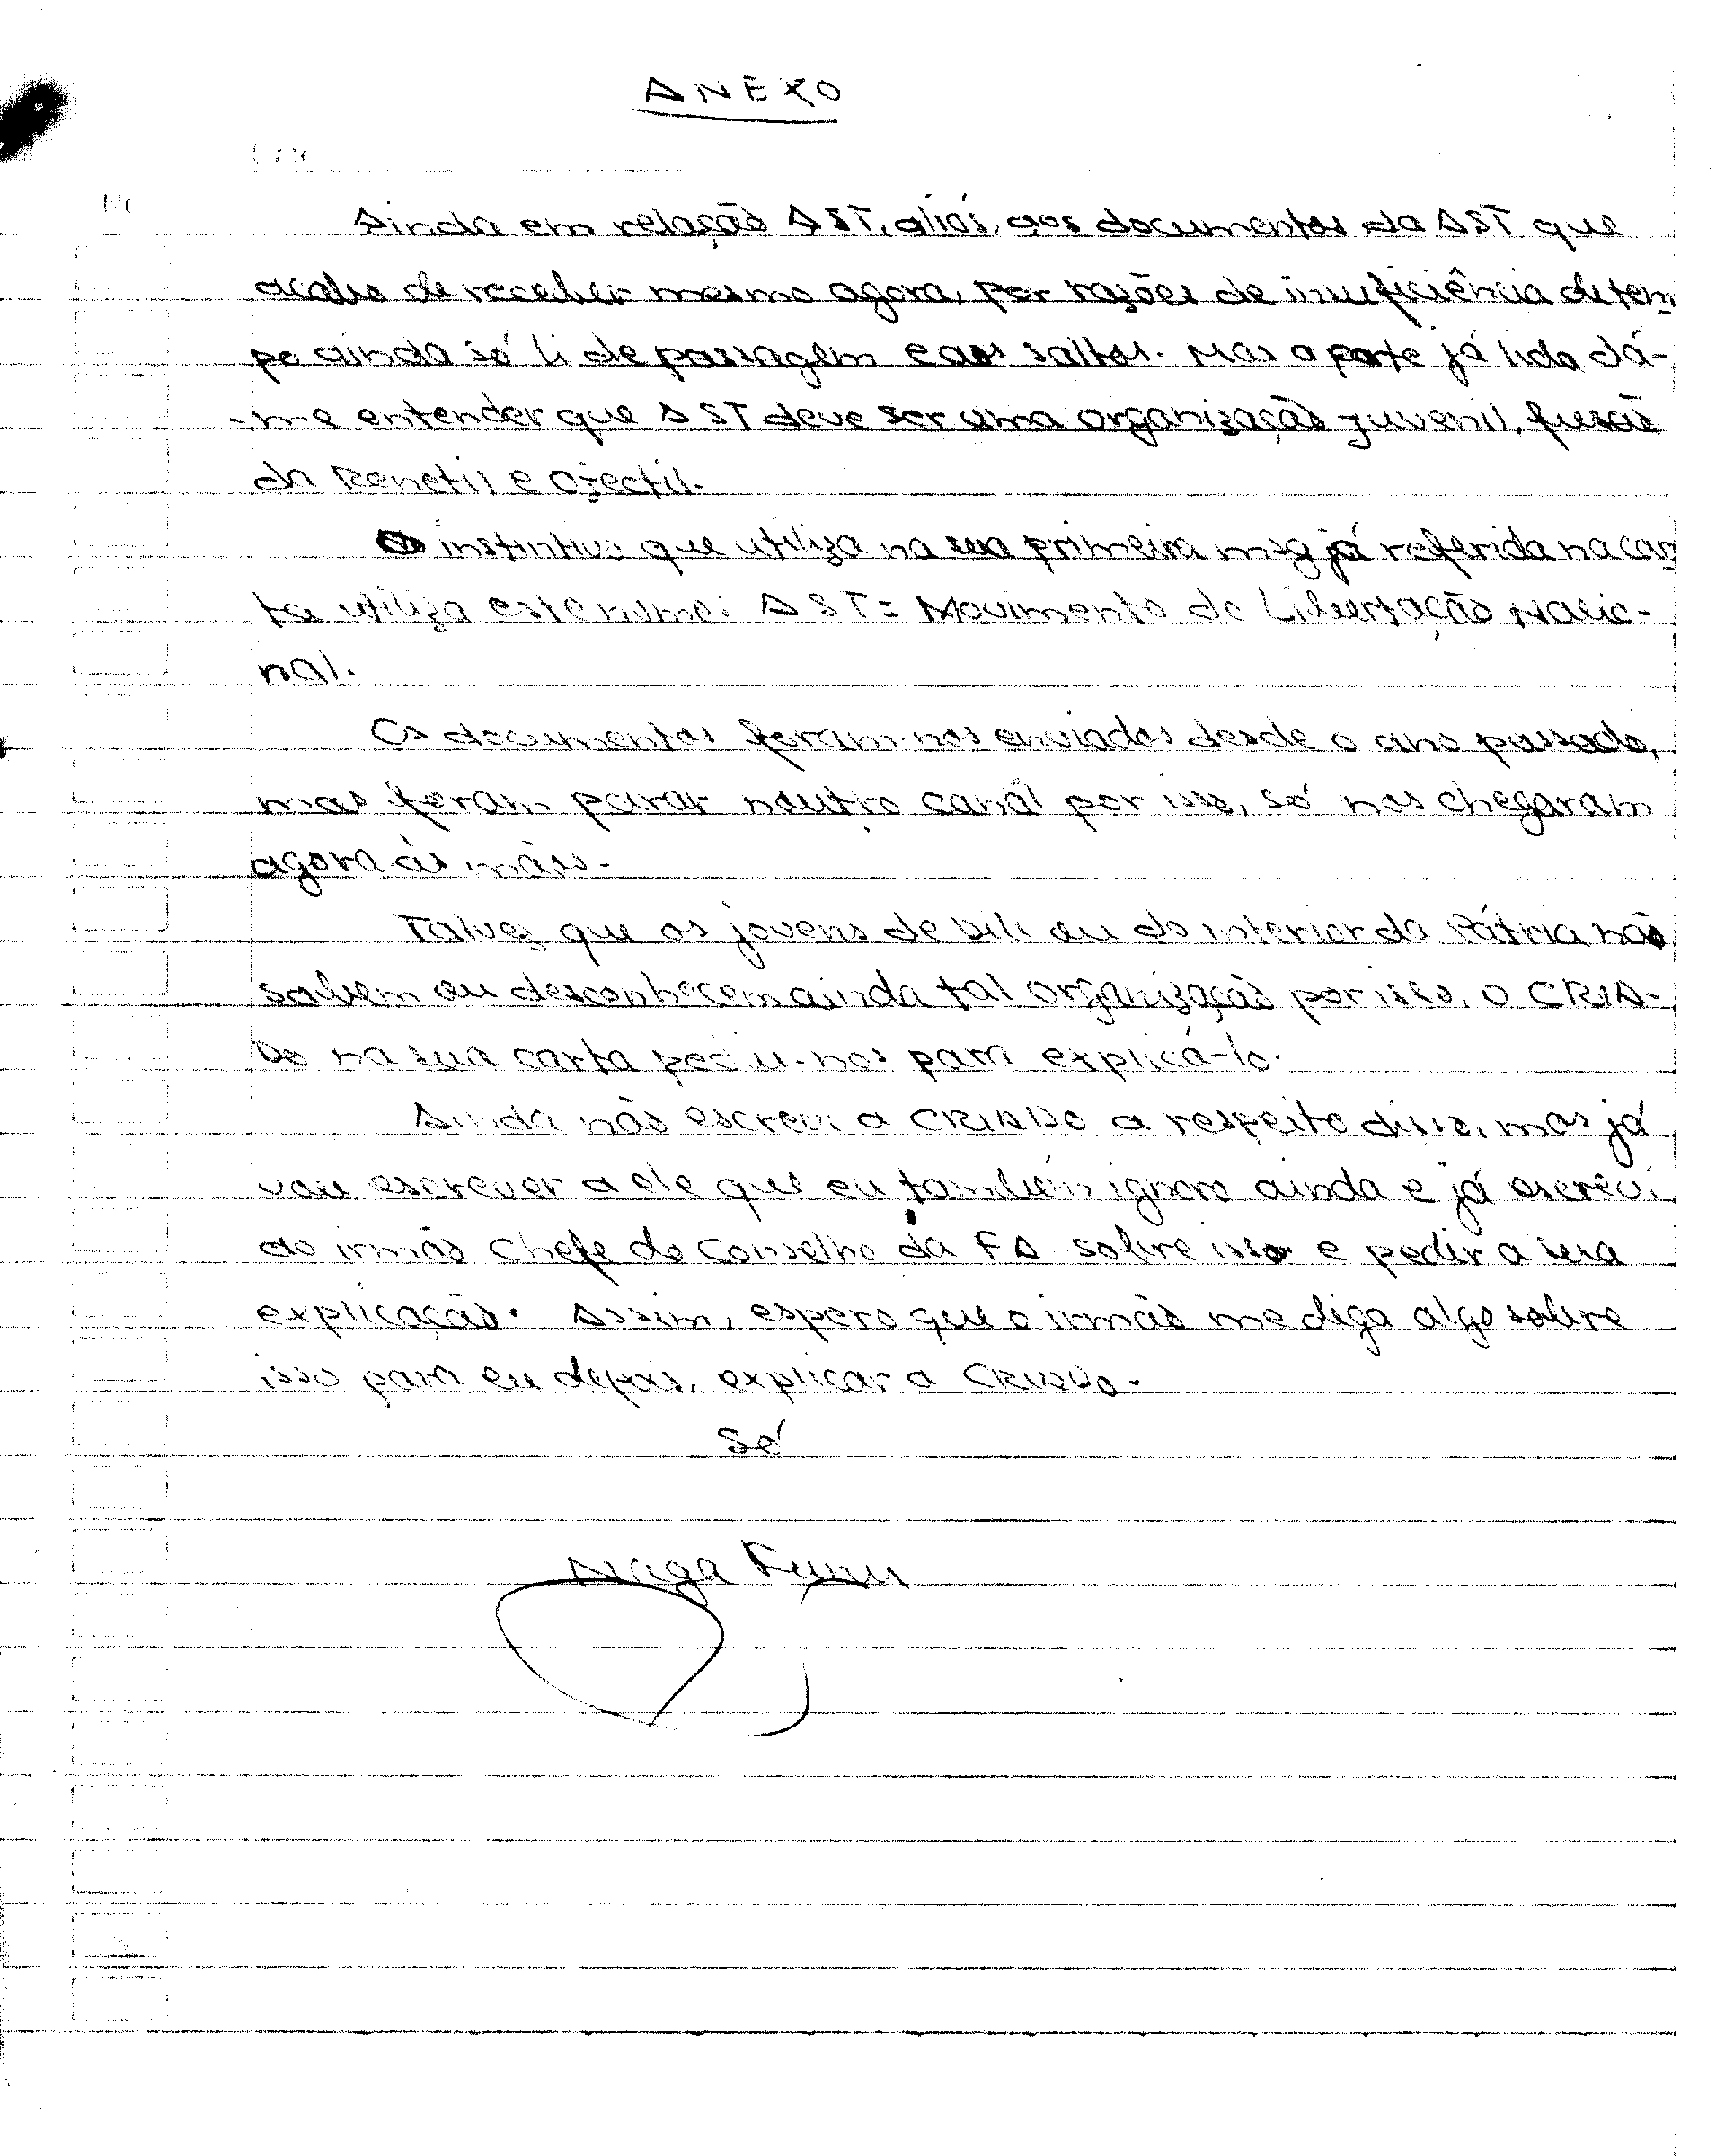 ANEXO
Ainda em relação AST, aliás, aos documentos da AST que
acabo de receber mesmo agora, por razões de insuficiência de tem
po ainda só li de passagem e aos saltos. Mas a parte já lida dá-
-me entender que AST deve ser uma organização juvenil, fusão
da Renetil e Ojectil.
O instintivo que utiliza na sua primeira msg já referida na car
ta utiliza este nome: AST = Movimento de Libertação Nacio-
nal.
Os documentos foram-nos enviados desde o ano passado,
mas foram parar noutro canal por isso, só nos chegaram
agora às mãos.
Talvez que os jovens de Dili ou do interior da Pátria não
sabem ou desconhecem ainda tal organização por isso, o CRIA-
DO na sua carta pediu-nos para explicá-lo.
Ainda não escrevi a CRIADO a respeito disso, mas já
vou escrever a ele que eu também ignoro ainda e já escrevi
ao irmão Chefe do Conselho da FA sobre isso e pedir a sua
explicação. Assim, espero que o irmão me diga algo sobre
isso para eu depois, explicar a CRIADO.
Só